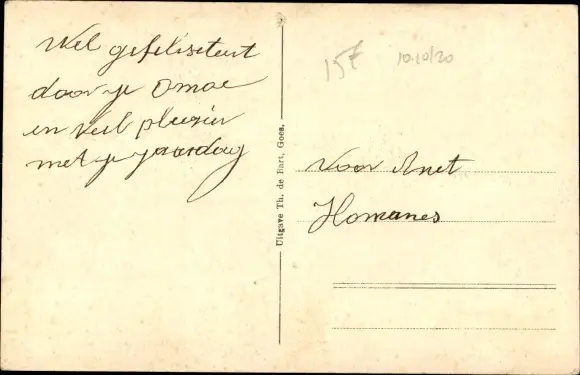 Wel gefeliseteert
door je Omoe
en veel plezier
met je jaardag
Uitgave Th. de Bart, Goes.
15 F
10.10/20
Voor Anet
Homanes